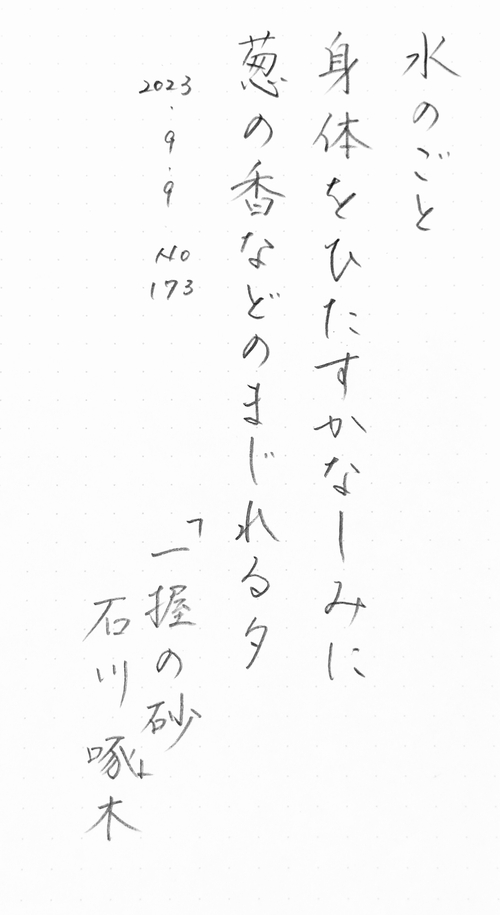 水のごと
身体をひたすかなしみに
葱の香などのまじれる夕
2023.9.9 No 173
「一握の砂」
石川啄木